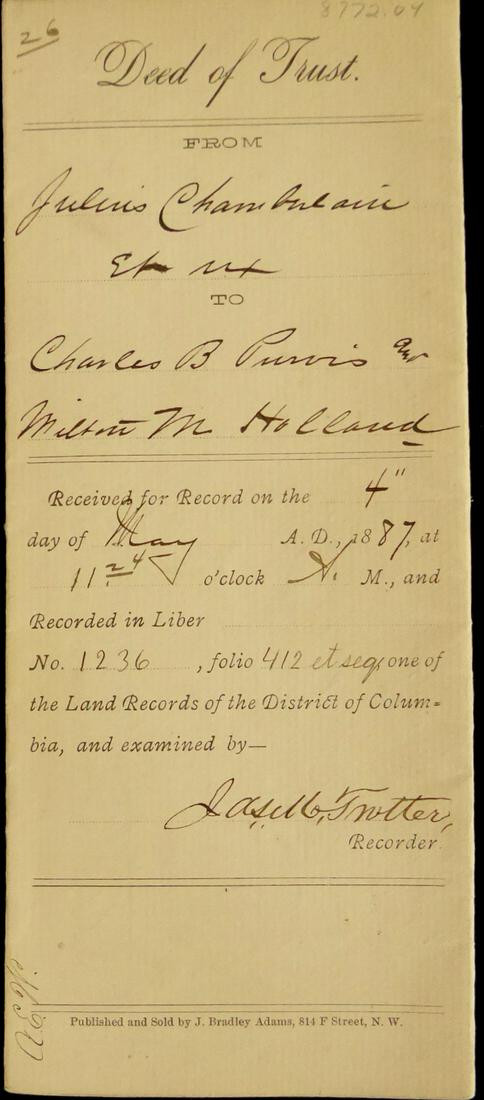 8772.04
26
Deed of Trust.
FROM
Julius Chamberlain
Et ux
TO
Charles B Purvis and
Milton M Holland
Received for Record on the 4"
day of May A. D., 1887, at
11 24 o'clock A. M., and
Recorded in Liber
No. 1236, folio 412 et seq, one of
the Land Records of the District of Colum-
bia, and examined by—
Jas. M. Trotter,
Recorder.
Published and Sold by J. Bradley Adams, 814 F Street, N. W.